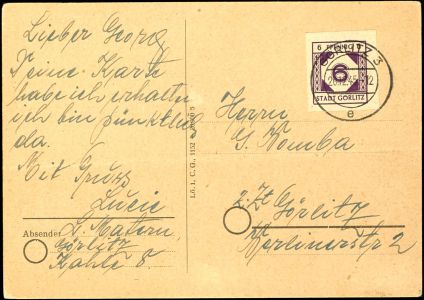 Lieber Georg
Deine Karte
habe ich erhalten
ich bin pünktlich
da.
Mit Gruss
Lucie
Absender
L. Matern,
Görlitz
Kahle 8.
Lö. I. C. G., 1152
6 PFENNIG
6
STADT GÖRLITZ
GÖRLITZ 3
e
Herrn
G. Komba
z. Zt Görlitz
Berlinerstr 2